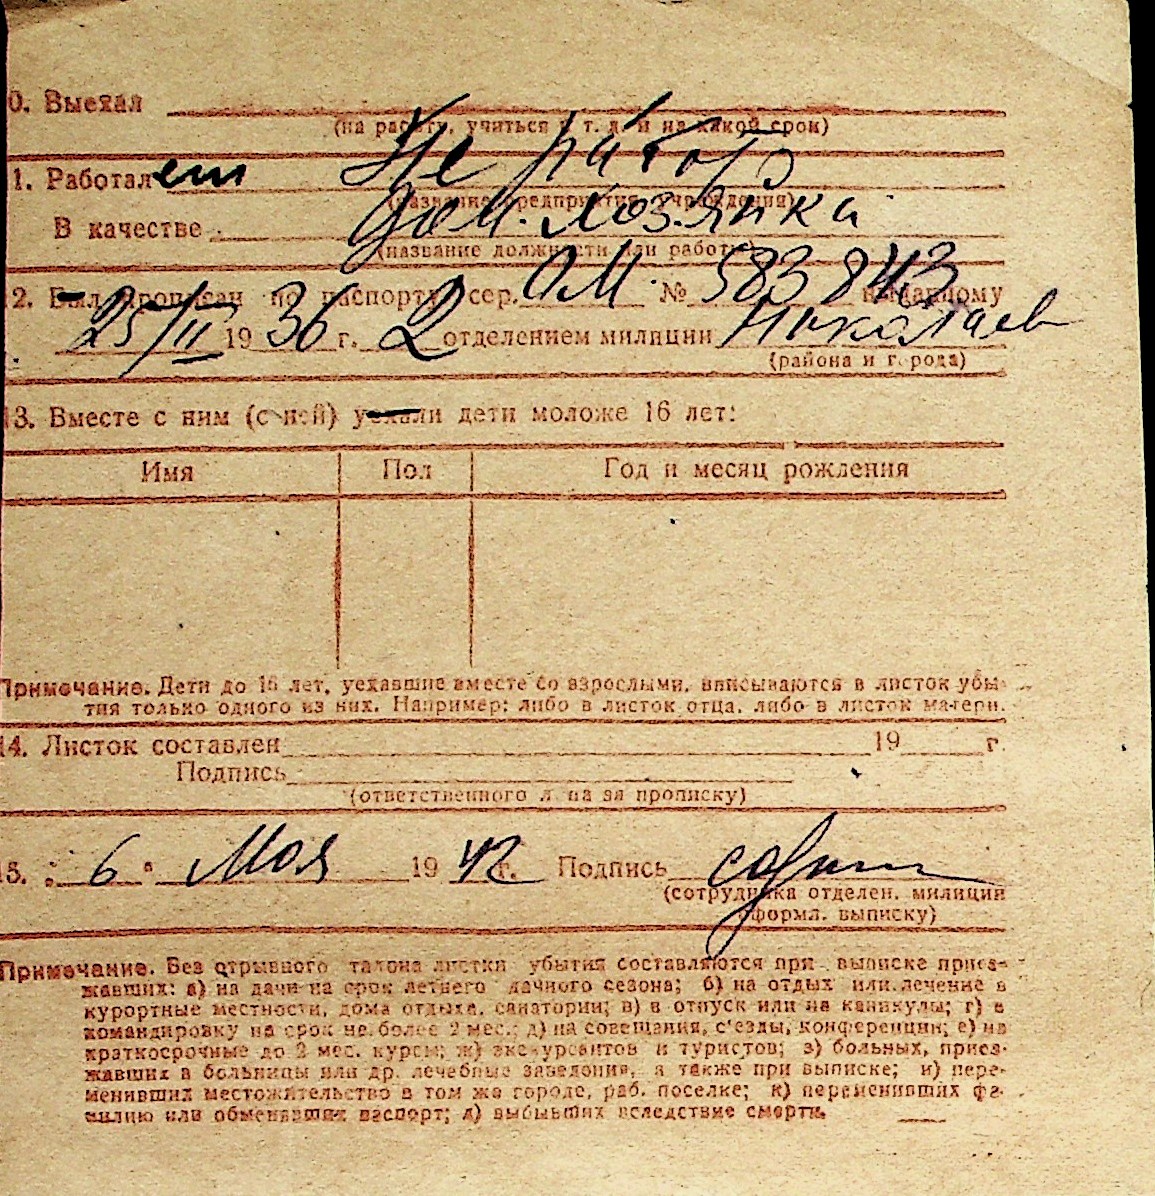 0. Выехал
(на работу, учиться и т. д. и на какой срок)
1. Работал ет Не работает
(название предприятия, учреждения)
В качестве дом. хозяйка
(название должности или работы)
12. Был прописан по паспорту сер. ОМ № 583843 выданному
25/II 1936 г. 2 отделением милиции Николаев
(района и города)
13. Вместе с ним (с ней) уехали дети моложе 16 лет:
Имя Пол Год и месяц рождения
Примечание. Дети до 16 лет, уехавшие вместе со взрослыми, вписываются в листок убы-
тия только одного из них. Например: либо в листок отца, либо в листок матери.
14. Листок составлен 19 г.
Подпись
(ответственного лица за прописку)
15. „6“ Мая 1942 г. Подпись
(сотрудника отделен. милиции
оформл. выписку)
Примечание. Без отрывного талона листки убытия составляются при выписке приез-
жавших: а) на дачи на срок летнего дачного сезона; б) на отдых или лечение в
курортные местности, дома отдыха, санатории; в) в отпуск или на каникулы; г) в
командировку на срок не более 2 мес.; д) на совещания, с'езды, конференции; е) на
краткосрочные до 2 мес. курсы; ж) экскурсантов и туристов; з) больных, приез-
жавших в больницы или др. лечебные заведения, а также при выписке; и) пере-
менивших местожительство в том же городе, раб. поселке; к) переменивших фа-
милию или обменявших паспорт; л) выбывших вследствие смерти.